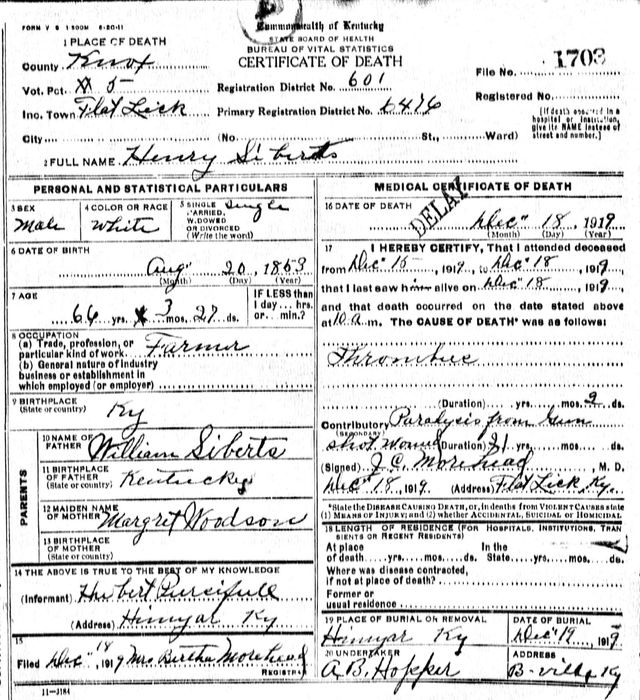 FORM V S 1 500M 6-20-11
Commonwealth of Kentucky
STATE BOARD OF HEALTH
BUREAU OF VITAL STATISTICS
CERTIFICATE OF DEATH
1 PLACE OF DEATH
County Knox
Vot. Pct. 5
Registration District No. 601
File No. 1703
Inc. Town Flat Lick
Primary Registration District No. 6416
Registered No.
City (No. St., Ward)
(If death occurred in a hospital or institution, give its NAME instead of street and number.)
2 FULL NAME Henry Siberts
PERSONAL AND STATISTICAL PARTICULARS
3 SEX Male
4 COLOR OR RACE White
5 SINGLE MARRIED, WIDOWED OR DIVORCED (Write the word) Single
6 DATE OF BIRTH
Aug 20, 1853
(Month) (Day) (Year)
7 AGE
66 yrs. 3 mos. 27 ds.
IF LESS than 1 day... hrs. or... min.?
8 OCCUPATION
(a) Trade, profession, or particular kind of work. Farmer
(b) General nature of industry business or establishment in which employed (or employer)
9 BIRTHPLACE
(State or country) Ky
PARENTS
10 NAME OF FATHER William Siberts
11 BIRTHPLACE OF FATHER (State or country) Kentucky
12 MAIDEN NAME OF MOTHER Margret Woodson
13 BIRTHPLACE OF MOTHER (State or country)
14 THE ABOVE IS TRUE TO THE BEST OF MY KNOWLEDGE
(Informant) Hubert Pursifull
(Address) Himyar Ky
15
Filed Dec 18, 1919 Mrs Bertha Morehead
REGISTRAR
11-3184
MEDICAL CERTIFICATE OF DEATH
16 DATE OF DEATH
DELAY
Dec 18, 1919
(Month) (Day) (Year)
17 I HEREBY CERTIFY, That I attended deceased
from Dec 15, 1919, to Dec 18, 1919
that I last saw him alive on Dec 18, 1919
and that death occurred on the date stated above
at 10 a.m. The CAUSE OF DEATH* was as follows:
(Duration) yrs. mos. 9 ds.
Contributory Paralysis from Gun
(SECONDARY)
shot wound (Duration) 31 yrs. mos. ds.
(Signed) J.C. Morehead, M. D.
Dec 18, 1919 (Address) Flat Lick, Ky.
*State the DISEASE CAUSING DEATH, or, in deaths from VIOLENT CAUSES state (1) MEANS OF INJURY; and (2) whether ACCIDENTAL, SUICIDAL or HOMICIDAL
18 LENGTH OF RESIDENCE (FOR HOSPITALS, INSTITUTIONS, TRANSIENTS OR RECENT RESIDENTS)
At place of death... yrs. mos. ds. In the State... yrs. mos. ds.
Where was disease contracted, if not at place of death?
Former or usual residence
19 PLACE OF BURIAL OR REMOVAL
Himyar Ky
DATE OF BURIAL
Dec 19 1919
20 UNDERTAKER
A.B. Hopper
ADDRESS
B-ville Ky